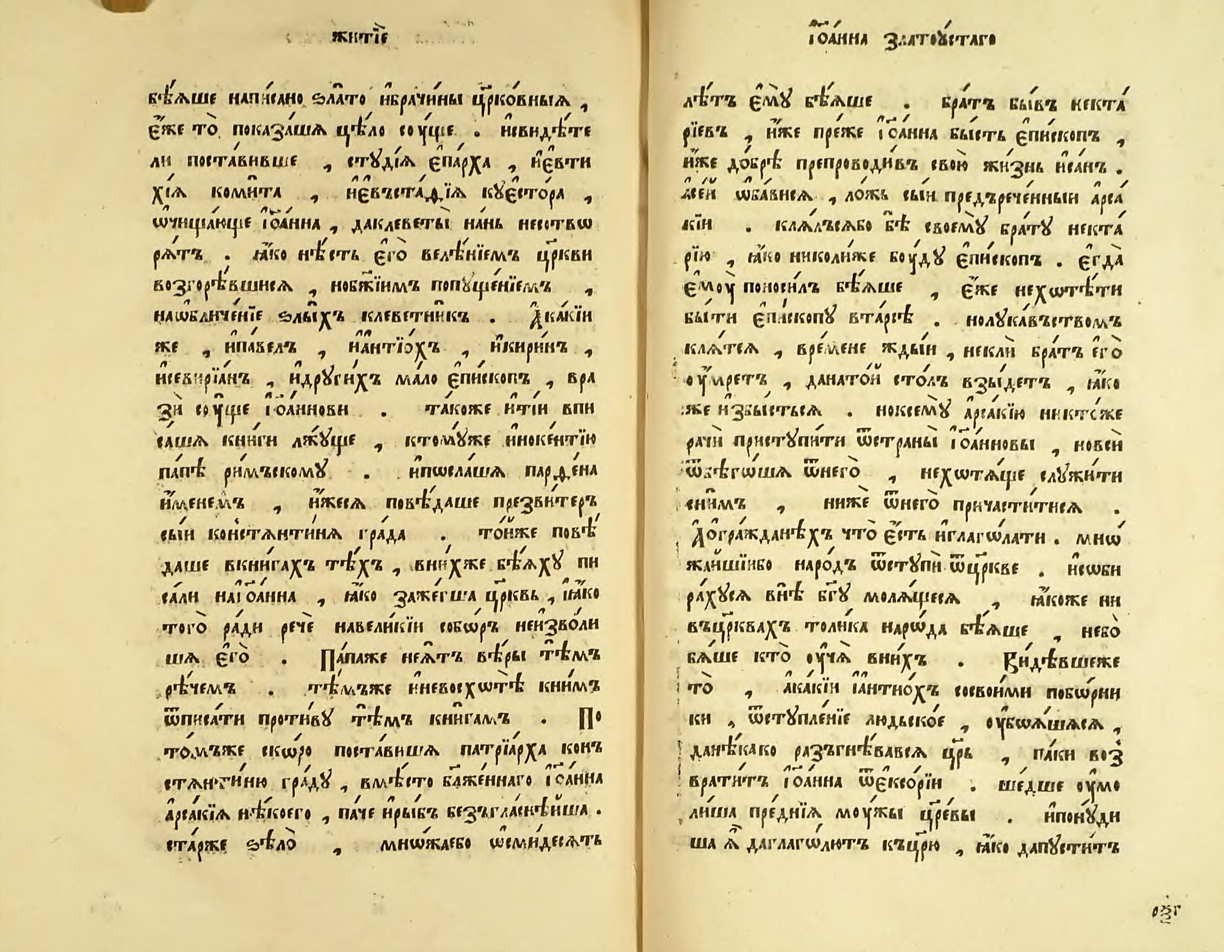 житїе
бѣ́ѧше напи́сано ѕла́то и҆брачи́ны цр҃ко́вныѧ ,
є҆́же то̀ показа́шѧ цѣ́ло сꙋ́ще . невидѣ́те
ли поста́вивше , стꙋді́ѧ є҆па́рха , и҆є҆вти
хі́ѧ коми́та , и҆є҆въста́ѳїѧ кꙋє҆́стора ,
ѡ҆чища́юще і҆ѡа́нна , даклеветы̀ на́нь несотвѡ
рѧ́тъ . ꙗ҆́ко нѣ́сть є҆гѡ̀ велѣ́нїемъ цр҃кви
возгорѣ́вшисѧ , нобж҃їимъ попꙋще́нїемъ ,
наѡ҆бличе́нїе ѕлы́хъ клеветни́къ . А҆ка́кїи
же , и҆па́велъ , и҆а҆нтїо́хъ , и҆кири́нъ ,
и҆севирїа́нъ , и҆дрꙋги́хъ ма́ло є҆пи́скопъ , вра
зѝ сꙋ́ще і҆ѡа́ннови . та́коже и҆ті́и впи
са́шѧ кни́ги лжꙋ́ще , ктомꙋ́же и҆ноке́нтїю
па́пѣ ри́мъскомꙋ . и҆пѡсла́шѧ парѳе́на
и҆́менемъ , и҆́жесѧ повѣ́даше презви́теръ
сы́и констѧнти́нѧ гра́да . то́иже повѣ́
даше вкни́гахъ тѣ́хъ , вни́хже бѣ́ѧхꙋ пи
са́ли наі҆ѡа́нна , ꙗ҆́ко зажегша̀ цр҃квь , и҆ꙗ҆́ко
того̀ ра́ди речѐ навели́кїи собо́ръ неи҆зво́ли
шѧ є҆го̀ . Па́паже неꙗ҆́тъ вѣ́ры тѣ́мъ
рѣ́чемъ . тѣ́мъже и҆невосхѡтѣ̀ кни́мъ
ѿписа́ти проти́вꙋ тѣ́мъ кни́гамъ . По
то́мъже ско́ро поста́вишѧ патрїа́рха конъ
стѧнти́ню гра́дꙋ , вмѣ́сто бл҃же́ннаго і҆ѡа́нна
а҆рса́кїѧ нѣ́коего , па́че и҆ры́бъ безъгла́снѣйша .
ста́рже ѕѣлѡ̀ , мнѡ́жаебо ѡ҆смидесѧ́тъ
і҆ѡа́нна златоꙋ́стаго
лѣ́тъ є҆мꙋ̀ бѣ́ѧше . бра́тъ бы́въ некта́
рїевъ , и҆́же пре́же і҆ѡа́нна бы́сть є҆пи́скопъ ,
и҆́же до́брѣ препроводи́въ свою̀ жи́знь и҆са́нъ .
а҆се́й ѡ҆ба́висѧ , ло́жь сы́и предърече́нныи а҆рса́
кїи . клѧ́лъсѧбо бѣ̀ своемꙋ̀ бра́тꙋ некта́
рїю , ꙗ҆́ко николи́же бꙋ́дꙋ є҆пи́скопъ . є҆гда̀
є҆мꙋ̀ поноси́лъ бѣ́ѧше , є҆́же нехѡтѣ́ти
бы́ти є҆пи́скопꙋ вта́рсѣ . нолꙋка́въствомъ
клѧ́тсѧ , вре́мене жды́и , неклѝ бра́тъ є҆го̀
ᲂу҆́мретъ , данато́й сто́лъ взы́детъ , ꙗ҆́ко
же и҆збы́стьсѧ . ноксемꙋ̀ а҆рса́кїю никто́же
рачѝ пристꙋпи́ти ѿстраны̀ і҆ѡа́нновы , новсѝ
ѿбѣго́шѧ ѿнего̀ , нехѡтѧ́ще слꙋжи́ти
сни́мъ , нижѐ ѿнего̀ причасти́тисѧ .
А҆гра́жданѣхъ что̀ є҆́сть и҆глаго́лати . мнѡ́
жайшїибо наро́дъ ѿстꙋпѝ ѿцр҃кве . и҆сѡби
ра́хꙋсѧ внѣ̀ бг҃ꙋ молѧ́щесѧ , ꙗ҆́коже ни
въцр҃квахъ толи́ка наро́да бѣ́ѧше , небо̀
бѧ́ше кто̀ ᲂу҆чѧ̀ вни́хъ . Ви́дѣвшеже
то̀ , а҆ка́кїи и҆а҆нтио́хъ сосвои́ми побо́рни
ки , ѿстꙋпле́нїе людьско́е , ᲂу҆боѧ́шѧсѧ ,
данѣ́како разъгнѣ́вавсѧ цр҃ь , па́ки воз̾
врати́тъ і҆ѡа́нна ѿє҆ксорі́и . ше́дше ᲂу҆мо
ли́ша пре́днїѧ мꙋ́жы цр҃евы . и҆понꙋ́ди
ша ѧ҆̀ даглаго́лютъ къцр҃ю , ꙗ҆́ко дапꙋ́ститъ
рѯ҃г